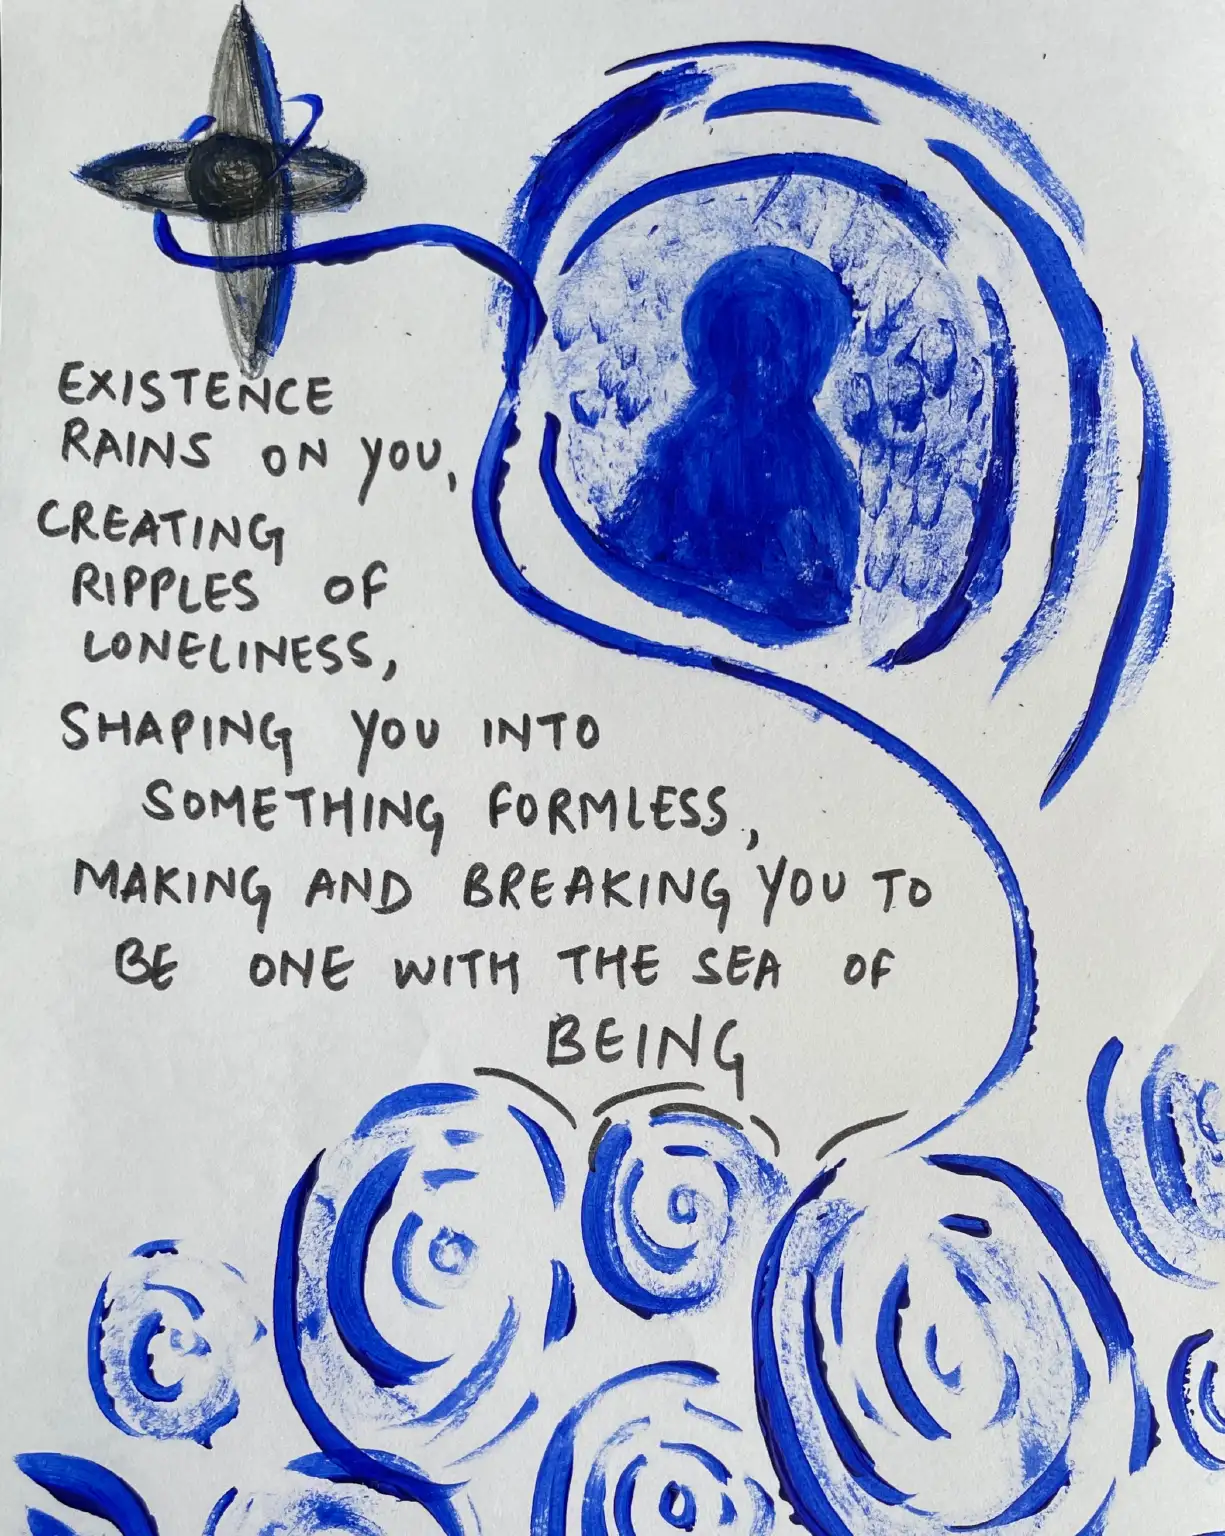 EXISTENCE
RAINS ON YOU,
CREATING
RIPPLES OF
LONELINESS,
SHAPING YOU INTO
SOMETHING FORMLESS,
MAKING AND BREAKING YOU TO
BE ONE WITH THE SEA OF
BEING